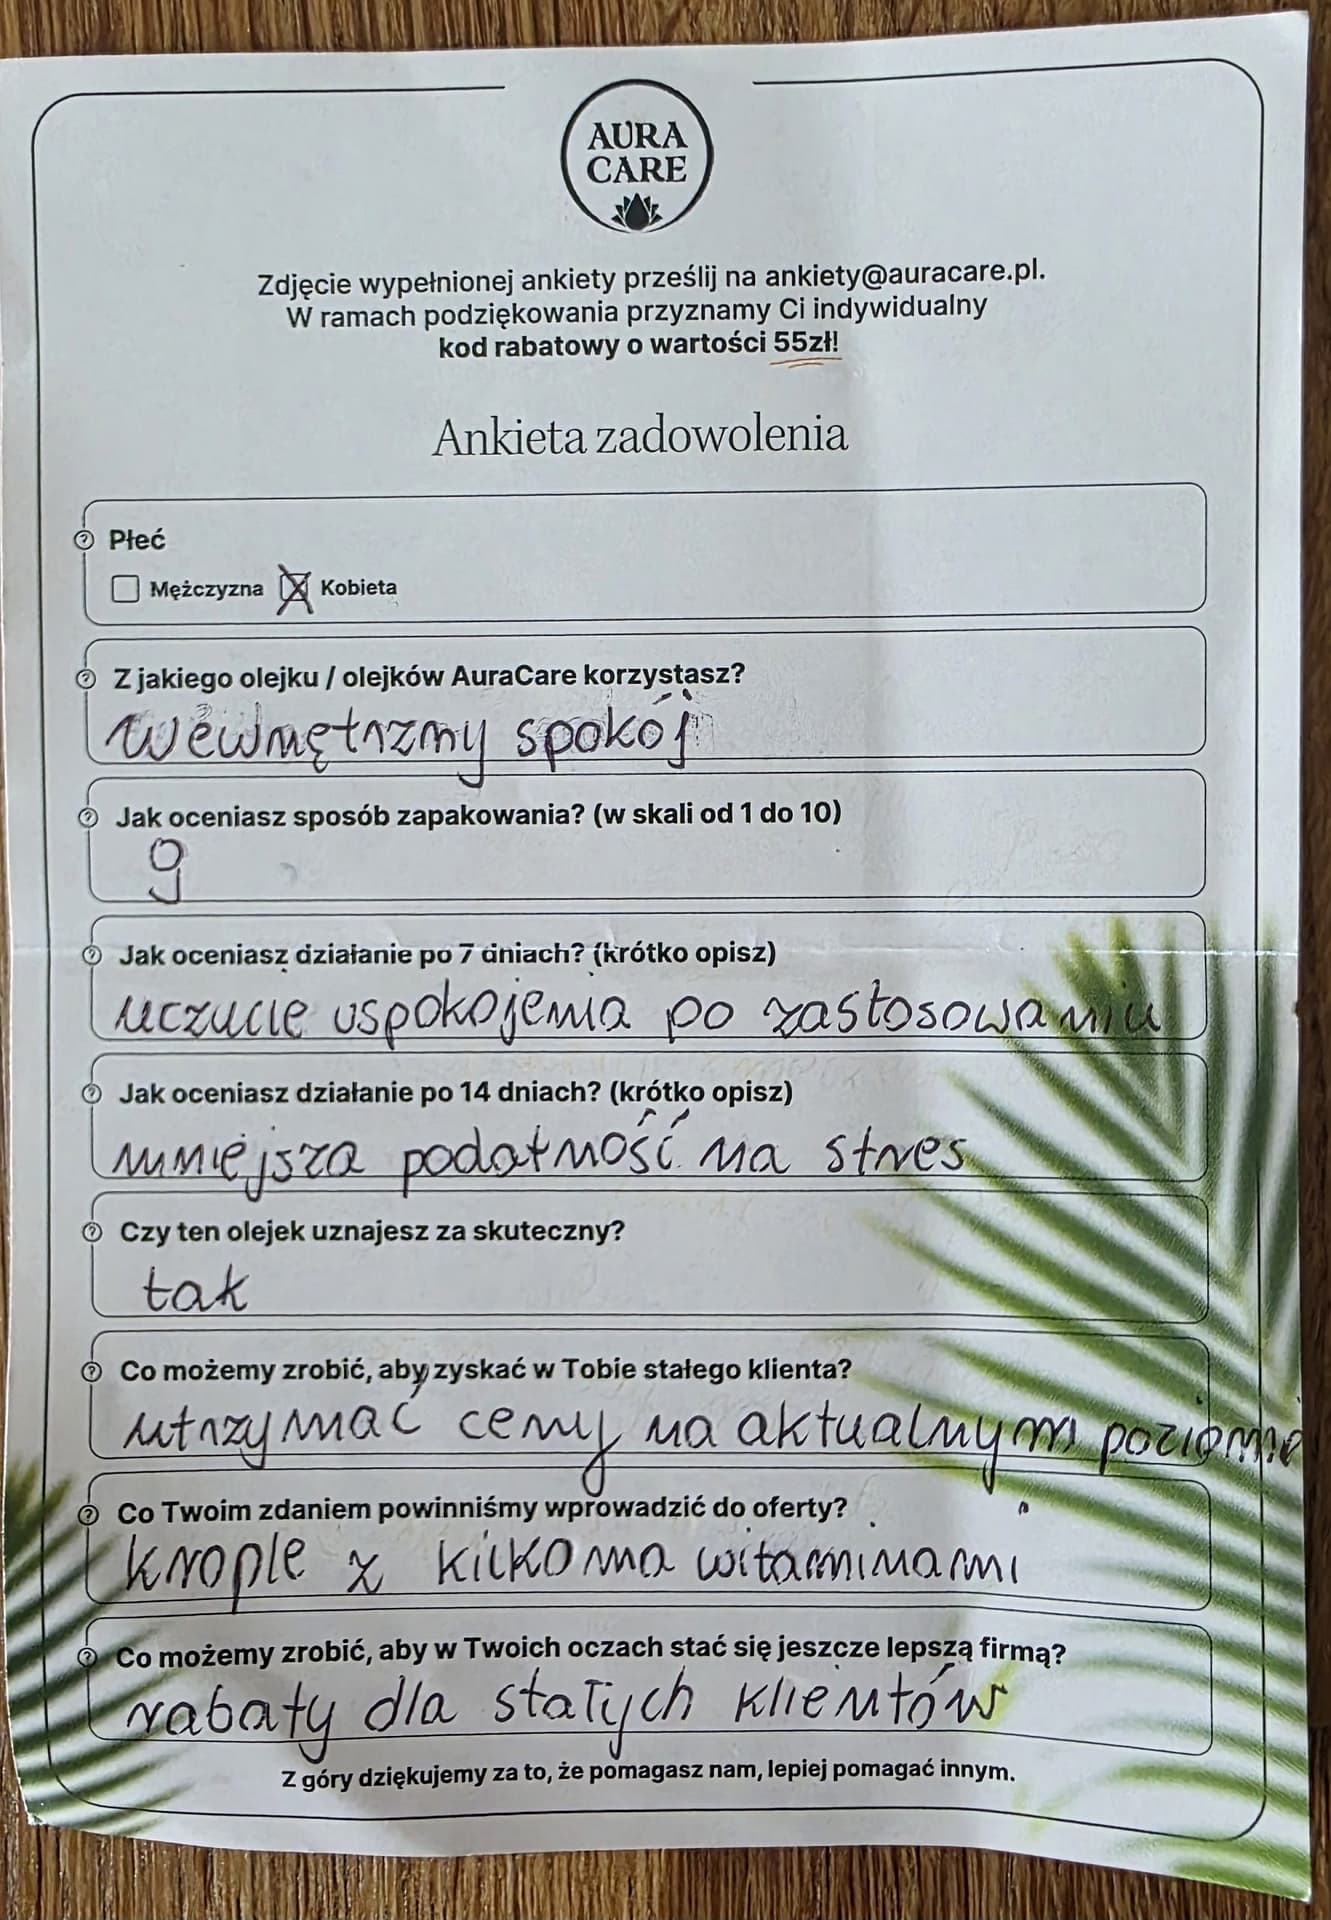 AURA
CARE
Zdjęcie wypełnionej ankiety prześlij na ankiety@auracare.pl.
W ramach podziękowania przyznamy Ci indywidualny
kod rabatowy o wartości 55zł!
Ankieta zadowolenia
Płeć
Mężczyzna Kobieta
Z jakiego olejku / olejków AuraCare korzystasz?
wewnętrzny spokój
Jak oceniasz sposób zapakowania? (w skali od 1 do 10)
9
Jak oceniasz działanie po 7 dniach? (krótko opisz)
uczucie uspokojenia po zastosowaniu
Jak oceniasz działanie po 14 dniach? (krótko opisz)
mniejsza podatność na stres
Czy ten olejek uznajesz za skuteczny?
tak
Co możemy zrobić, aby zyskać w Tobie stałego klienta?
utrzymać ceny na aktualnym poziomie
Co Twoim zdaniem powinniśmy wprowadzić do oferty?
krople z kilkoma witaminami
Co możemy zrobić, aby w Twoich oczach stać się jeszcze lepszą firmą?
rabaty dla stałych klientów
Z góry dziękujemy za to, że pomagasz nam, lepiej pomagać innym.